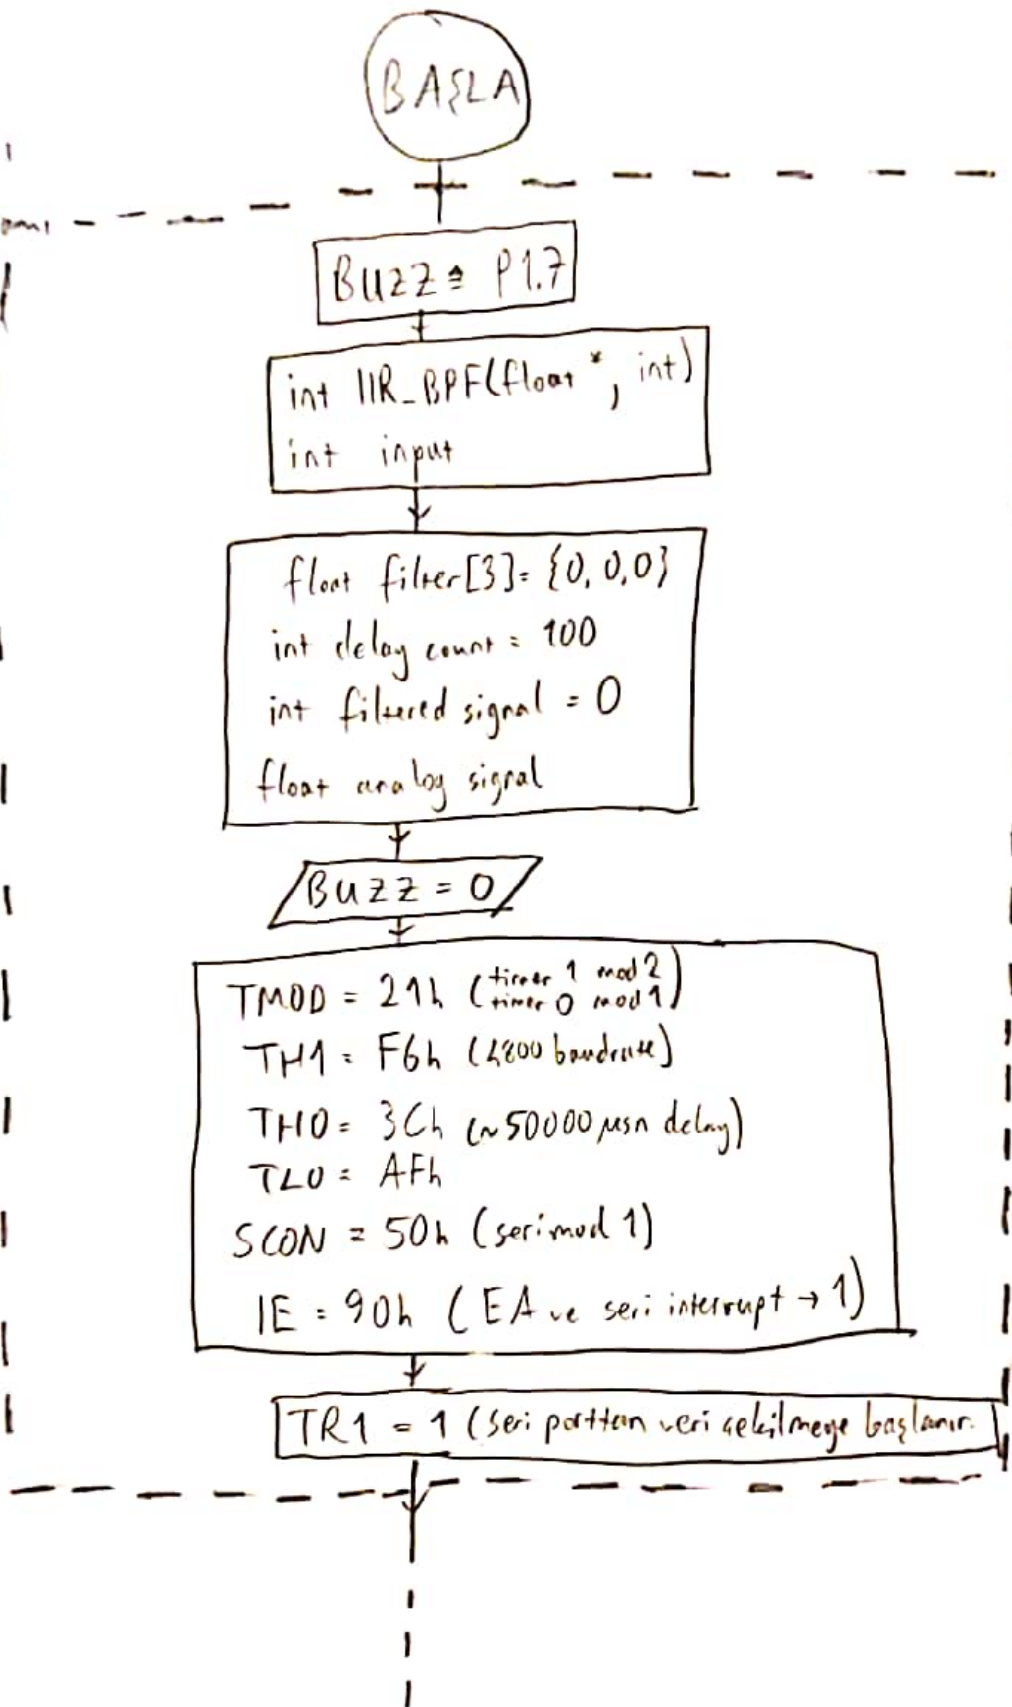 BAŞLA
BUZZ ≙ P1.7
int IIR_BPF(float *, int)
int input
float filter[3]= {0, 0, 0}
int delay count = 100
int filtered signal = 0
float analog signal
BUZZ = 0
TMOD = 21h (timer 1 mod 2
timer 0 mod 1)
TH1 = F6h (4800 baudrate)
TH0 = 3Ch (~50000 µsn delay)
TL0 = AFh
SCON = 50h (seri mod 1)
IE = 90h (EA ve seri interrupt → 1)
TR1 = 1 (Seri porttan veri çekilmeye başlanır.